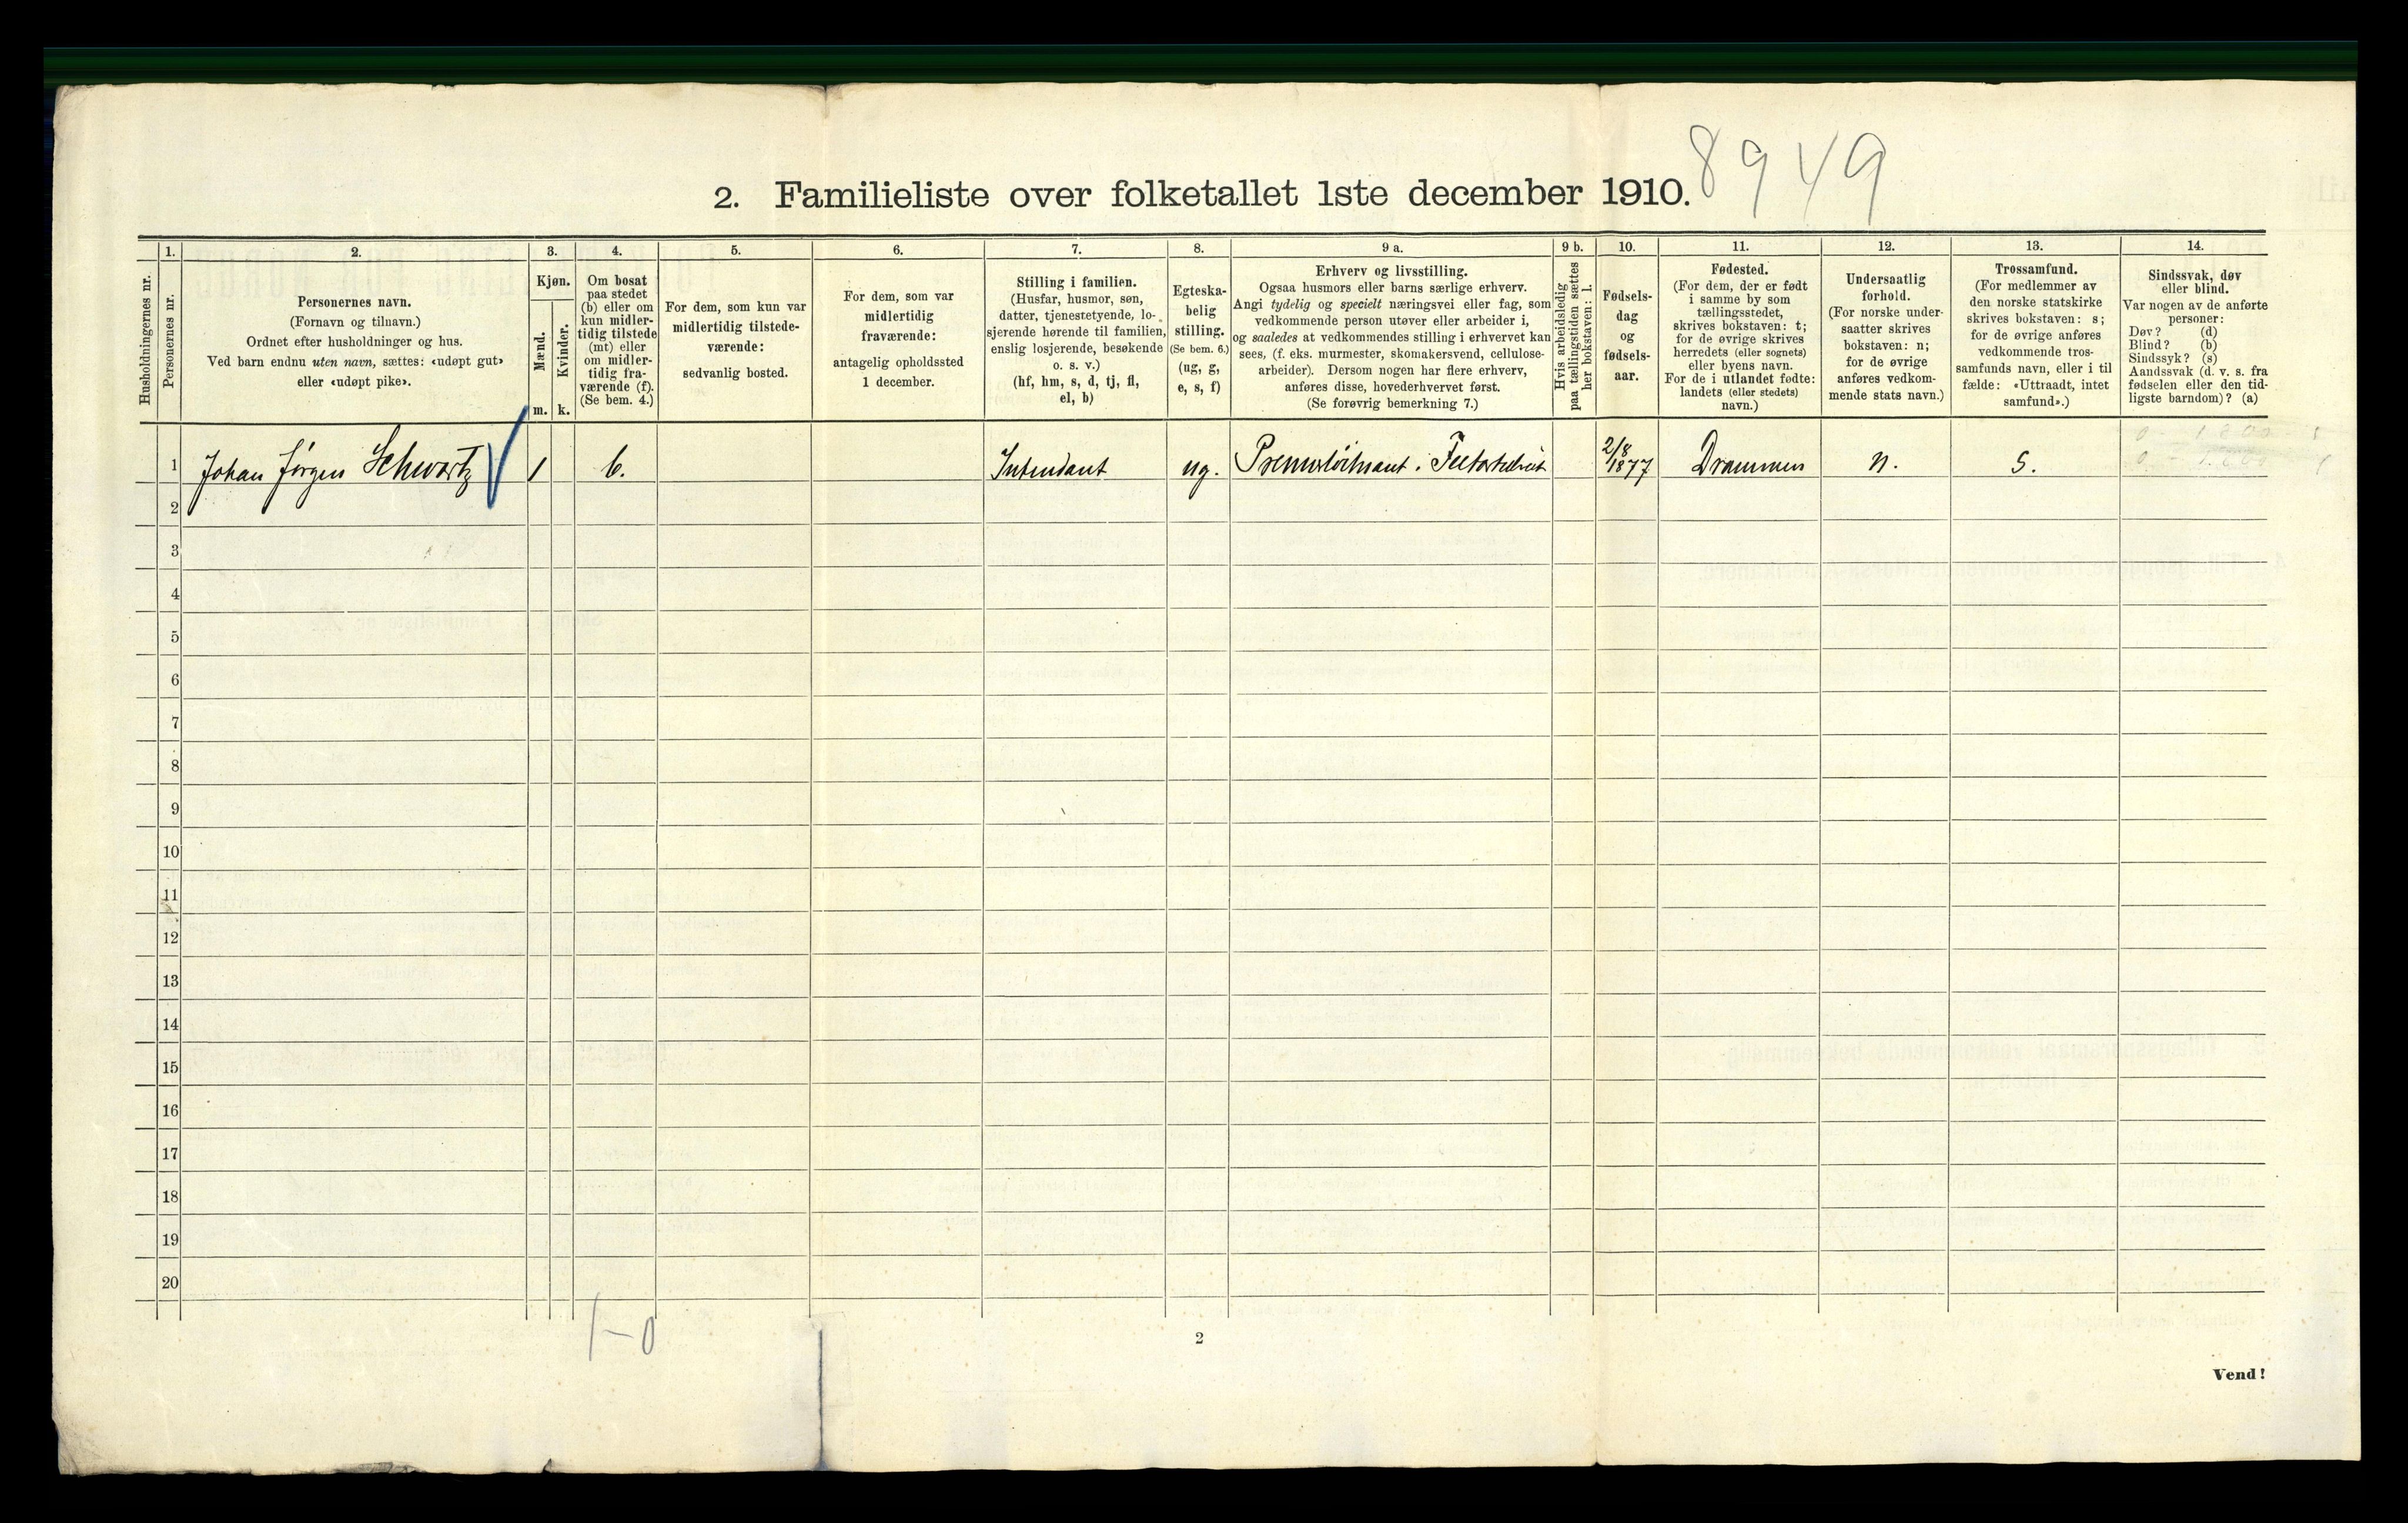 8949
2. Familieliste over folketallet 1ste december 1910.
Husholdningernes nr.
1.
Personernes nr.
2.
Personernes navn.
(Fornavn og tilnavn.)
Ordnet efter husholdninger og hus.
Ved barn endnu uten navn, sættes: «udøpt gut»
eller «udøpt pike».
3.
Kjøn.
Mænd.
m.
Kvinder.
k.
4.
Om bosat
paa stedet
(b) eller om
kun midler-
tidig tilstede
(mt) eller
om midler-
tidig fra-
værende (f).
(Se bem. 4.)
5.
For dem, som kun var
midlertidig tilstede-
værende:
sedvanlig bosted.
6.
For dem, som var
midlertidig
fraværende:
antagelig opholdssted
1 december.
7.
Stilling i familien.
(Husfar, husmor, søn,
datter, tjenestetyende, lo-
sjerende hørende til familien,
enslig losjerende, besøkende
o. s. v.)
(hf, hm, s, d, tj, fl,
el, b)
8.
Egteska-
belig
stilling.
(Se bem. 6.)
(ug, g,
e, s, f)
9 a.
Erhverv og livsstilling.
Ogsaa husmors eller barns særlige erhverv.
Angi tydelig og specielt næringsvei eller fag, som
vedkommende person utøver eller arbeider i,
og saaledes at vedkommendes stilling i erhvervet kan
sees, (f. eks. murmester, skomakersvend, cellulose-
arbeider). Dersom nogen har flere erhverv,
anføres disse, hovederhvervet først.
(Se forøvrig bemerkning 7.)
9 b.
Hvis arbeidsledig
paa tællingstiden sættes
her bokstaven: l.
10.
Fødsels-
dag
og
fødsels-
aar.
11.
Fødested.
(For dem, der er født
i samme by som
tællingsstedet,
skrives bokstaven: t;
for de øvrige skrives
herredets (eller sognets)
eller byens navn.
For de i utlandet fødte:
landets (eller stedets)
navn.)
12.
Undersaatlig
forhold.
(For norske under-
saatter skrives
bokstaven: n;
for de øvrige
anføres vedkom-
mende stats navn.)
13.
Trossamfund.
(For medlemmer av
den norske statskirke
skrives bokstaven: s;
for de øvrige anføres
vedkommende tros-
samfunds navn, eller i til
fælde: «Uttraadt, intet
samfund».)
14.
Sindssvak, døv
eller blind.
Var nogen av de anførte
personer:
Døv? (d)
Blind? (b)
Sindssyk? (s)
Aandssvak (d. v. s. fra
fødselen eller den tid-
ligste barndom)? (a)
1 Johan Jørgen Schwartz 1 b. Intendant ug. Premierløitnant i 2/8 1877 Drammen n. S.
2
3
4
5
6
7
8
9
10
11
12
13
14
15
16
17
18
19
20
1-0
2
Vend!